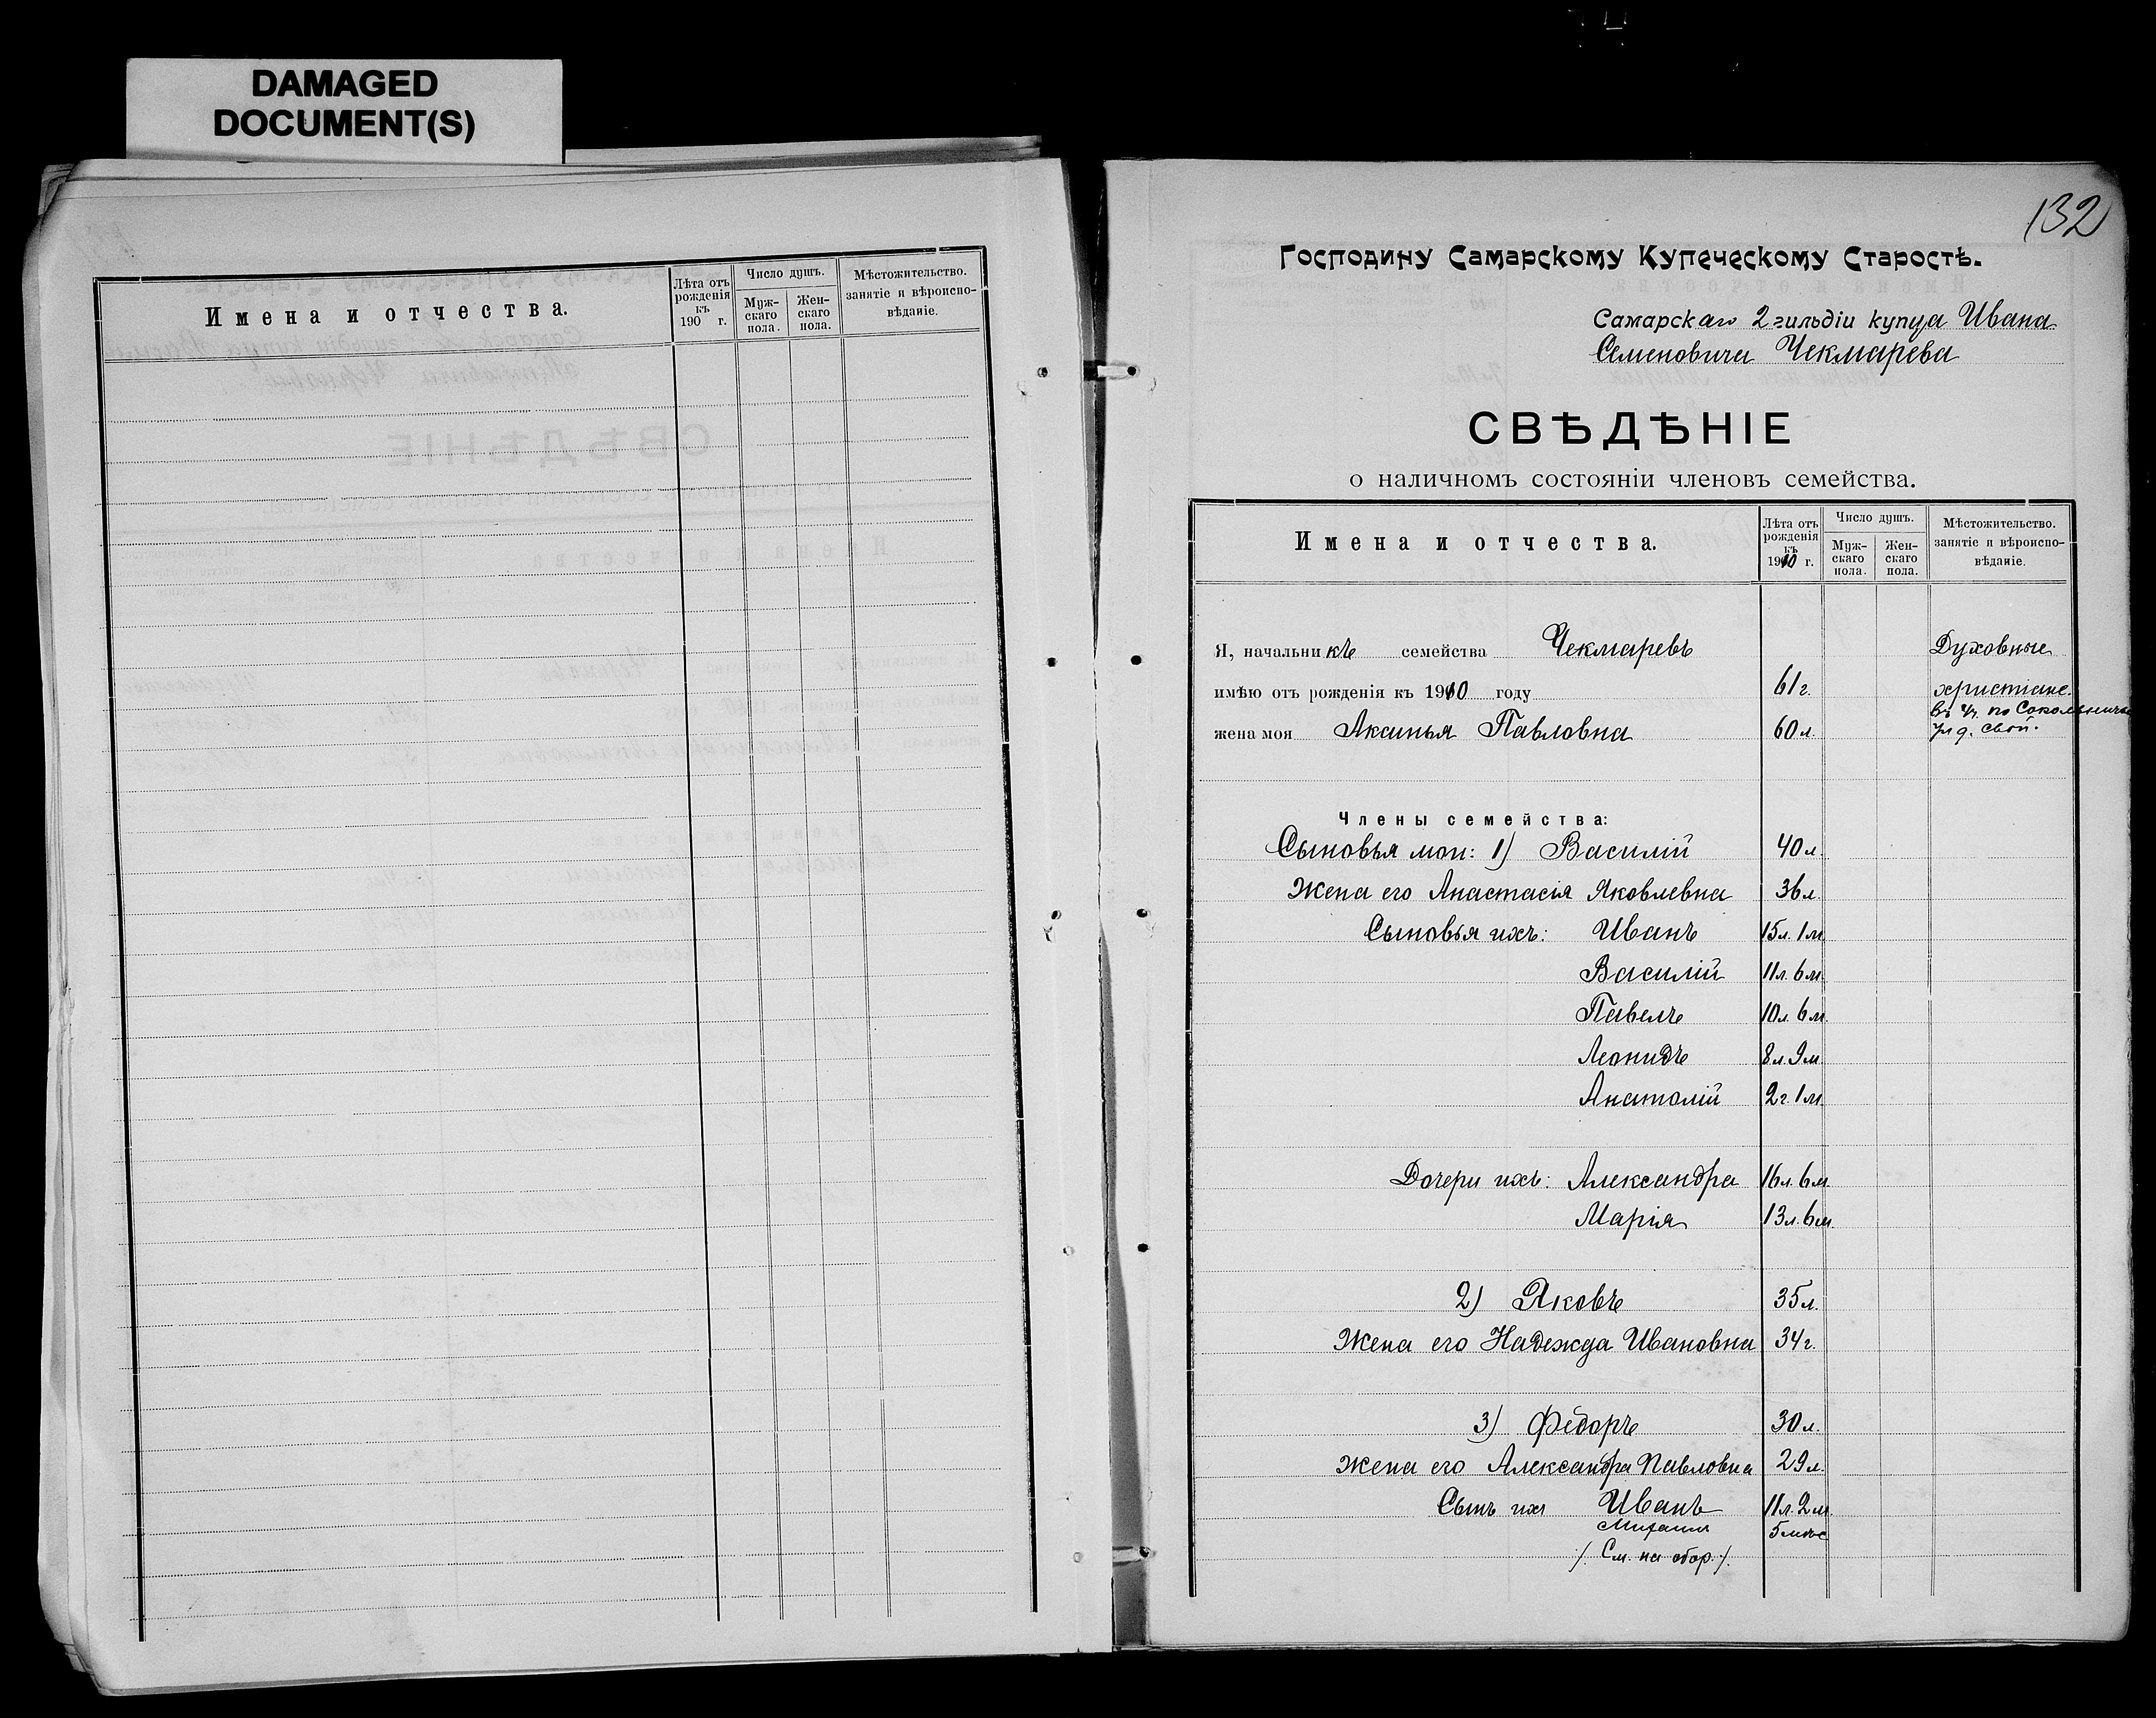 DAMAGED
DOCUMENT(S)
Имена и отчества.
Лѣта отъ рожденія къ 190 г.
Число душъ.
Муж-скаго пола.
Жен-скаго пола.
Мѣстожительство. занятіе и вѣроиспо-вѣданіе.
132
Господину Самарскому Купеческому Старостѣ.
Самарскаго 2 гильдіи купца Ивана
Семеновича Чекмарева
СВѢДѢНІЕ
о наличномъ состояніи членовъ семейства.
Имена и отчества.
Лѣта отъ рожденія къ 1910 г.
Число душъ.
Муж-скаго пола.
Жен-скаго пола.
Мѣстожительство. занятіе и вѣроиспо-вѣданіе.
Я, начальникъ семейства Чекмаревъ Духовные
имѣю отъ рожденія къ 1910 году 61 г. христіане.
въ 4 ч. по Сокольничь
жена моя Аксинья Павловна 60 л. ул д. свой.
Члены семейства:
Сыновья мои: 1) Василій 40 л.
Жена его Анастасія Яковлевна 36 л.
Сыновья ихъ: Иванъ 15 л. 1 м.
Василій 11 л. 6 м.
Павелъ 10 л. 6 м.
Леонидъ 8 л. 9 м.
Анатолій 2 г. 1 м.
Дочери ихъ: Александра 16 л. 6 м.
Марія 13 л. 6 м.
2) Яковъ 35 л.
Жена его Надежда Ивановна 34 г.
3) Федоръ 30 л.
Жена его Александра Павловна 29 л.
Сынъ ихъ Иванъ 11 л. 2 м.
Михаил 5 мѣс
/. См. на обор. /.